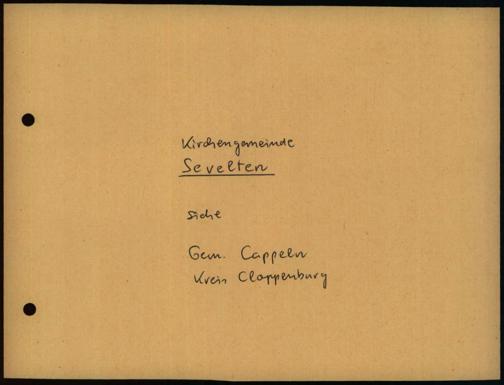 Kirchengemeinde
Sevelten
siehe
Gem. Cappeln
Kreis Cloppenburg